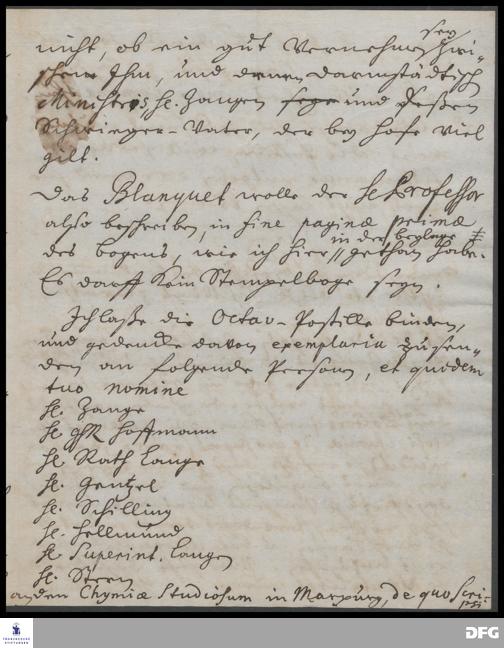 nicht, ob ein gut Vernehmen sey zwi-
schen Ihm, und denen Darmstädtisch
Ministris, H. Zangen und deßen
Schwieger-Vater, der bey Hofe viel
gilt.
Das Blanquet wolle der H Professor
also beschreiben, in fine paginæ primæ
des bogens, wie ich hier in der beylage gethan habe.
Es darff kein Stempelboge seyn.
Ich laße die Octav-Postille binden,
und gedencke davon exemplaria zu sen-
den an folgende Person, et quidem
tuo nomine
H. Zange
H. Hoffmann
H. Rath Lange
H. Gentzel
H. Schilling
H. Hellmund
H. Superint. Langen
H. Stern
anden Chymiæ Studiosum in Marpurg, de quo scri-
psi
FRANCKESCHE STIFTUNGEN
DFG